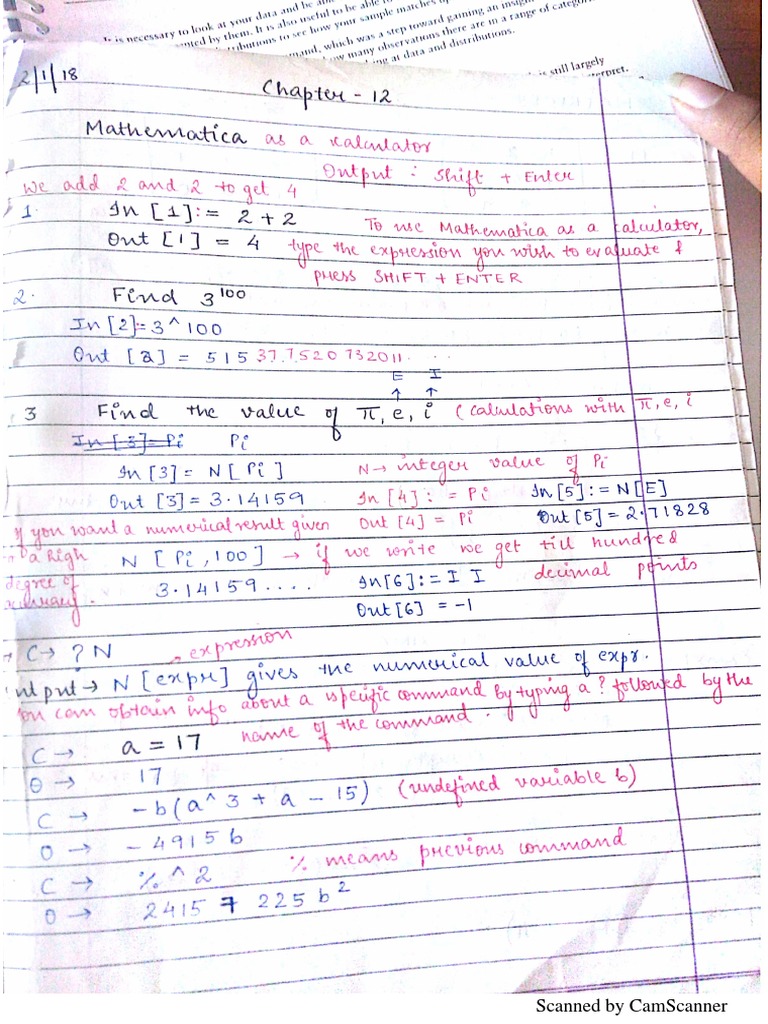 It is necessary to look at your data and be
by them. It is also useful to be able to
to see how your sample matches
which was a step toward gaining an insight
many observations there are in a range of
at data and distributions.
is still largely
2/1/18
Chapter - 12
Mathematica as a calculator
Output : Shift + Enter
We add 2 and 2 to get 4
1. In [1]:= 2 + 2 To use Mathematica as a calculator,
Out [1] = 4 type the expression you wish to evaluate &
press SHIFT + ENTER
2. Find 3^100
In [2]:= 3 ^ 100
Out [2] = 515 37 7520 732011 . . .
E I
↑ ↑
3 Find the value of π, e, i (calculations with π, e, i
In [3]= Pi Pi
In [3] = N [ Pi ] N → integer value of Pi
Out [3] = 3.14159 In [4] : = Pi In [5] := N [E]
if you want a numerical result given Out [4] = Pi Out [5] = 2.71828
a high N [ Pi, 100 ] → if we write we get till hundred
degree of 3.14159 . . . . In[6] := I I decimal points
Out [6] = -1
C → ? N expression
→ N [expr] gives the numerical value of expr.
You can obtain info about a specific command by typing a ? followed by the
name of the command.
C → a = 17
O → 17
C → - b (a ^ 3 + a - 15) (undefined variable b)
O → - 4915 b
C → % ^ 2 % means previous command
O → 2415 7 225 b²
Scanned by CamScanner